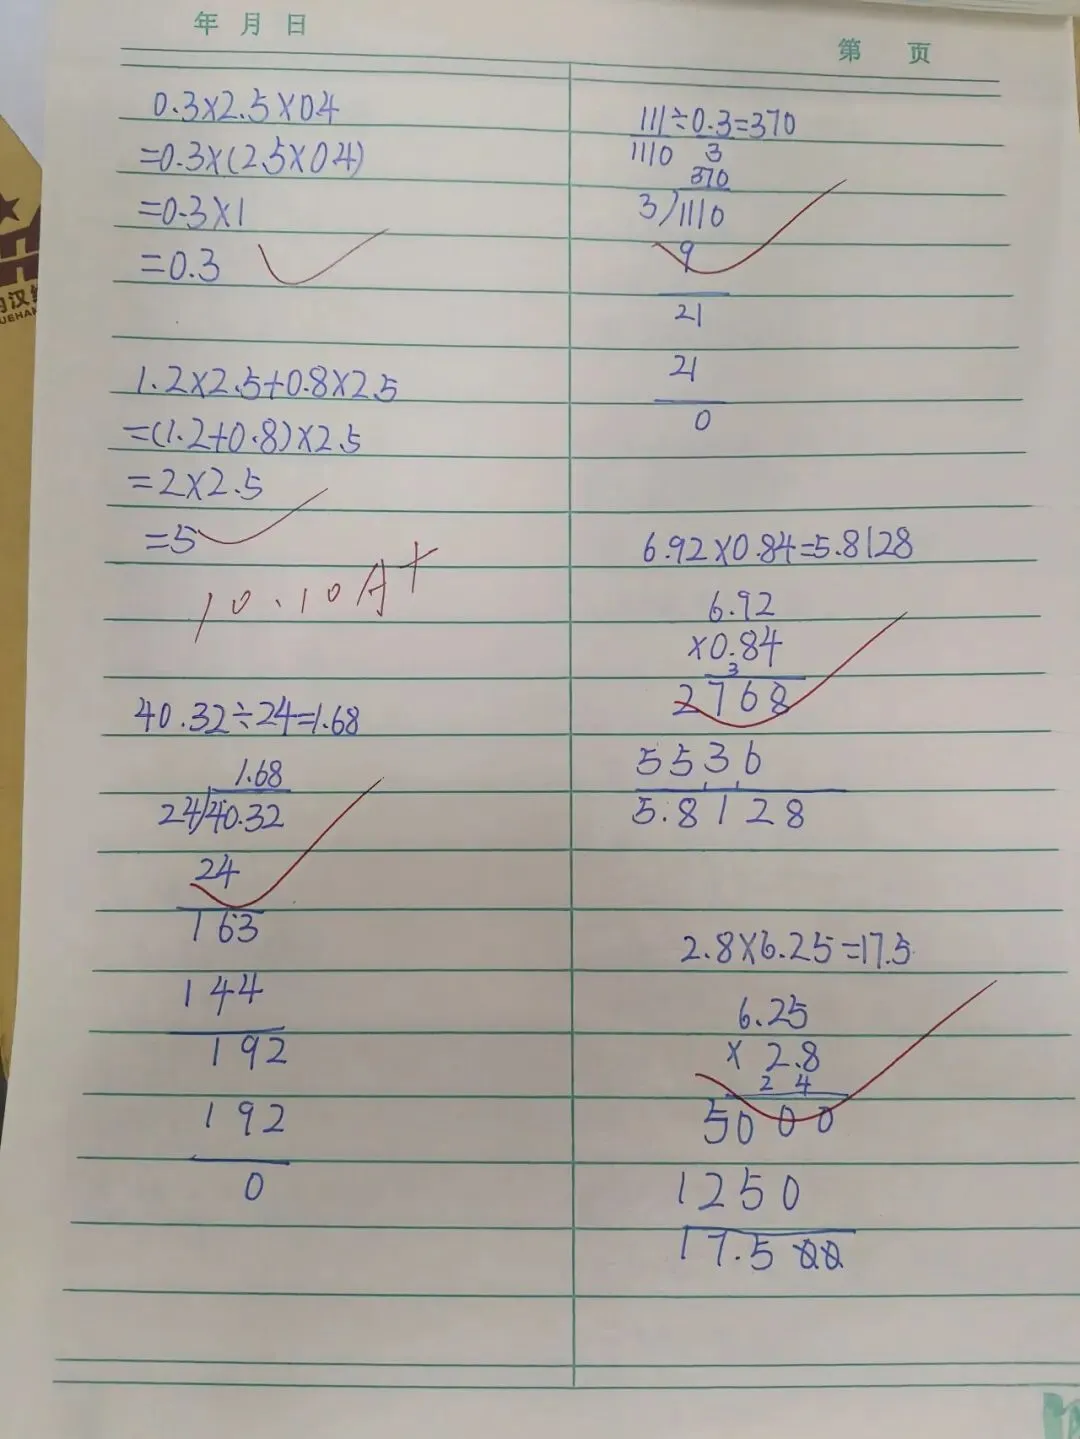 年 月 日
第 页
0.3×2.5×0.4
=0.3×(2.5×0.4)
=0.3×1
=0.3
1.2×2.5+0.8×2.5
=(1.2+0.8)×2.5
=2×2.5
=5
10.10A+
40.32÷24=1.68
1.68
24/40.32
24
163
144
192
192
0
111÷0.3=370
1110 3
370
3)1110
9
21
21
0
6.92×0.84=5.8128
6.92
×0.84
3
2768
5536
5.8128
2.8×6.25=17.5
6.25
×2.8
2 4
5000
1250
17.500